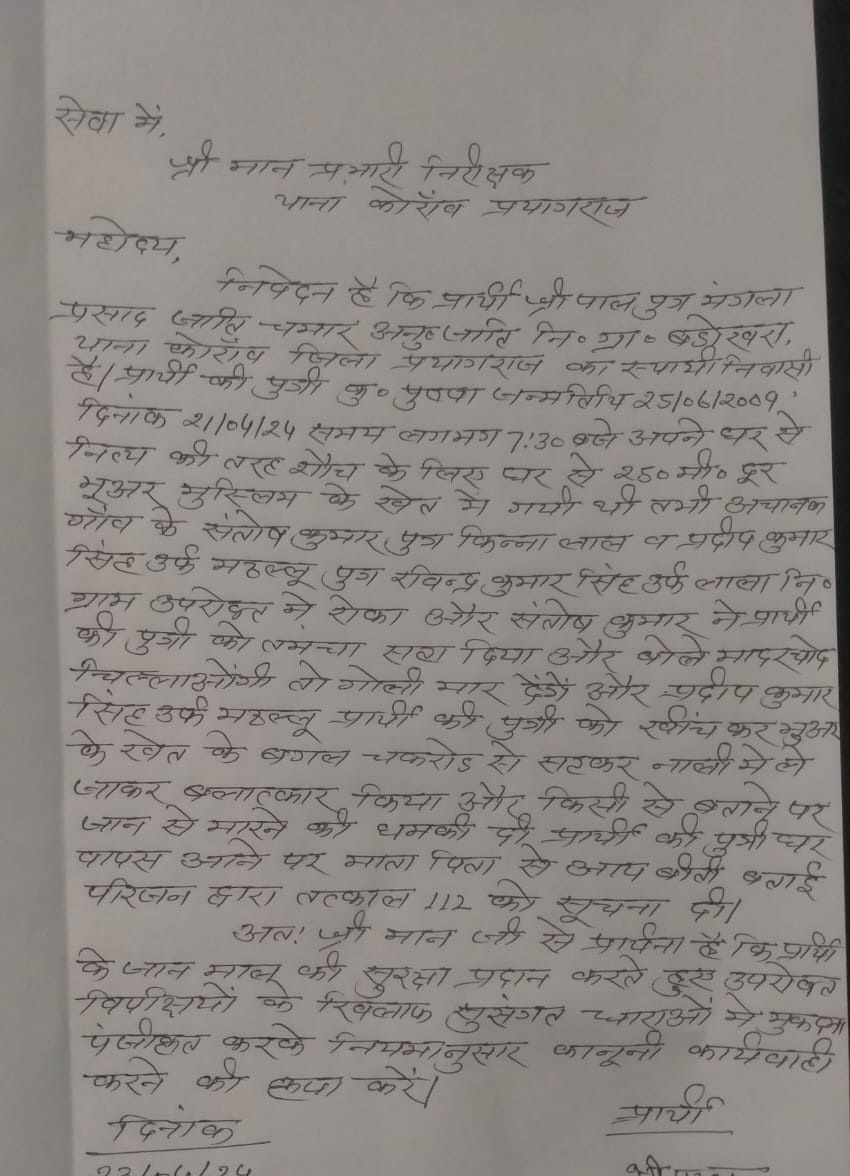 सेवा में,
श्री मान प्रभारी निरीक्षक
थाना कोराँव प्रयागराज
महोदय,
निवेदन है कि प्रार्थी श्री पाल पुत्र मंगला
प्रसाद जाति चमार अनु० जाति नि० ग्रा० बड़ोखरा,
थाना कोराँव जिला प्रयागराज का स्थायी निवासी
है। प्रार्थी की पुत्री कु० पुष्पा जन्मतिथि 25/06/2009,
दिनांक 21/04/24 समय लगभग 7:30 बजे अपने घर से
नित्य की तरह शौच के लिए घर से 250 मी० दूर
भूअर मुस्लिम के खेत में गयी थी तभी अचानक
गाँव के संतोष कुमार पुत्र किन्ना लाल व प्रदीप कुमार
सिंह उर्फ मठल्लू पुत्र रविन्द्र कुमार सिंह उर्फ लाला नि०
ग्राम उपरोक्त ने रोका और संतोष कुमार ने प्रार्थी
की पुत्री को तमंचा सटा दिया और बोले मादरचोद
चिल्लाओगी तो गोली मार देंगें और प्रदीप कुमार
सिंह उर्फ मठल्लू प्रार्थी की पुत्री को खींच कर भुअर
के खेत के बगल चकरोड से सटकर नाली में ले
जाकर बलात्कार किया और किसी से बताने पर
जान से मारने की धमकी दी प्रार्थी की पुत्री घर
वापस आने पर माता पिता से आप बीती बताई
परिजन द्वारा तत्काल 112 को सूचना दी।
अतः श्री मान जी से प्रार्थना है कि प्रार्थी
के जान माल की सुरक्षा प्रदान करते हुए उपरोक्त
विपक्षियों के खिलाफ सुसंगत धाराओं में मुकदमा
पंजीकृत करके नियमानुसार कानूनी कार्यवाही
करने की कृपा करें।
दिनांक प्रार्थी